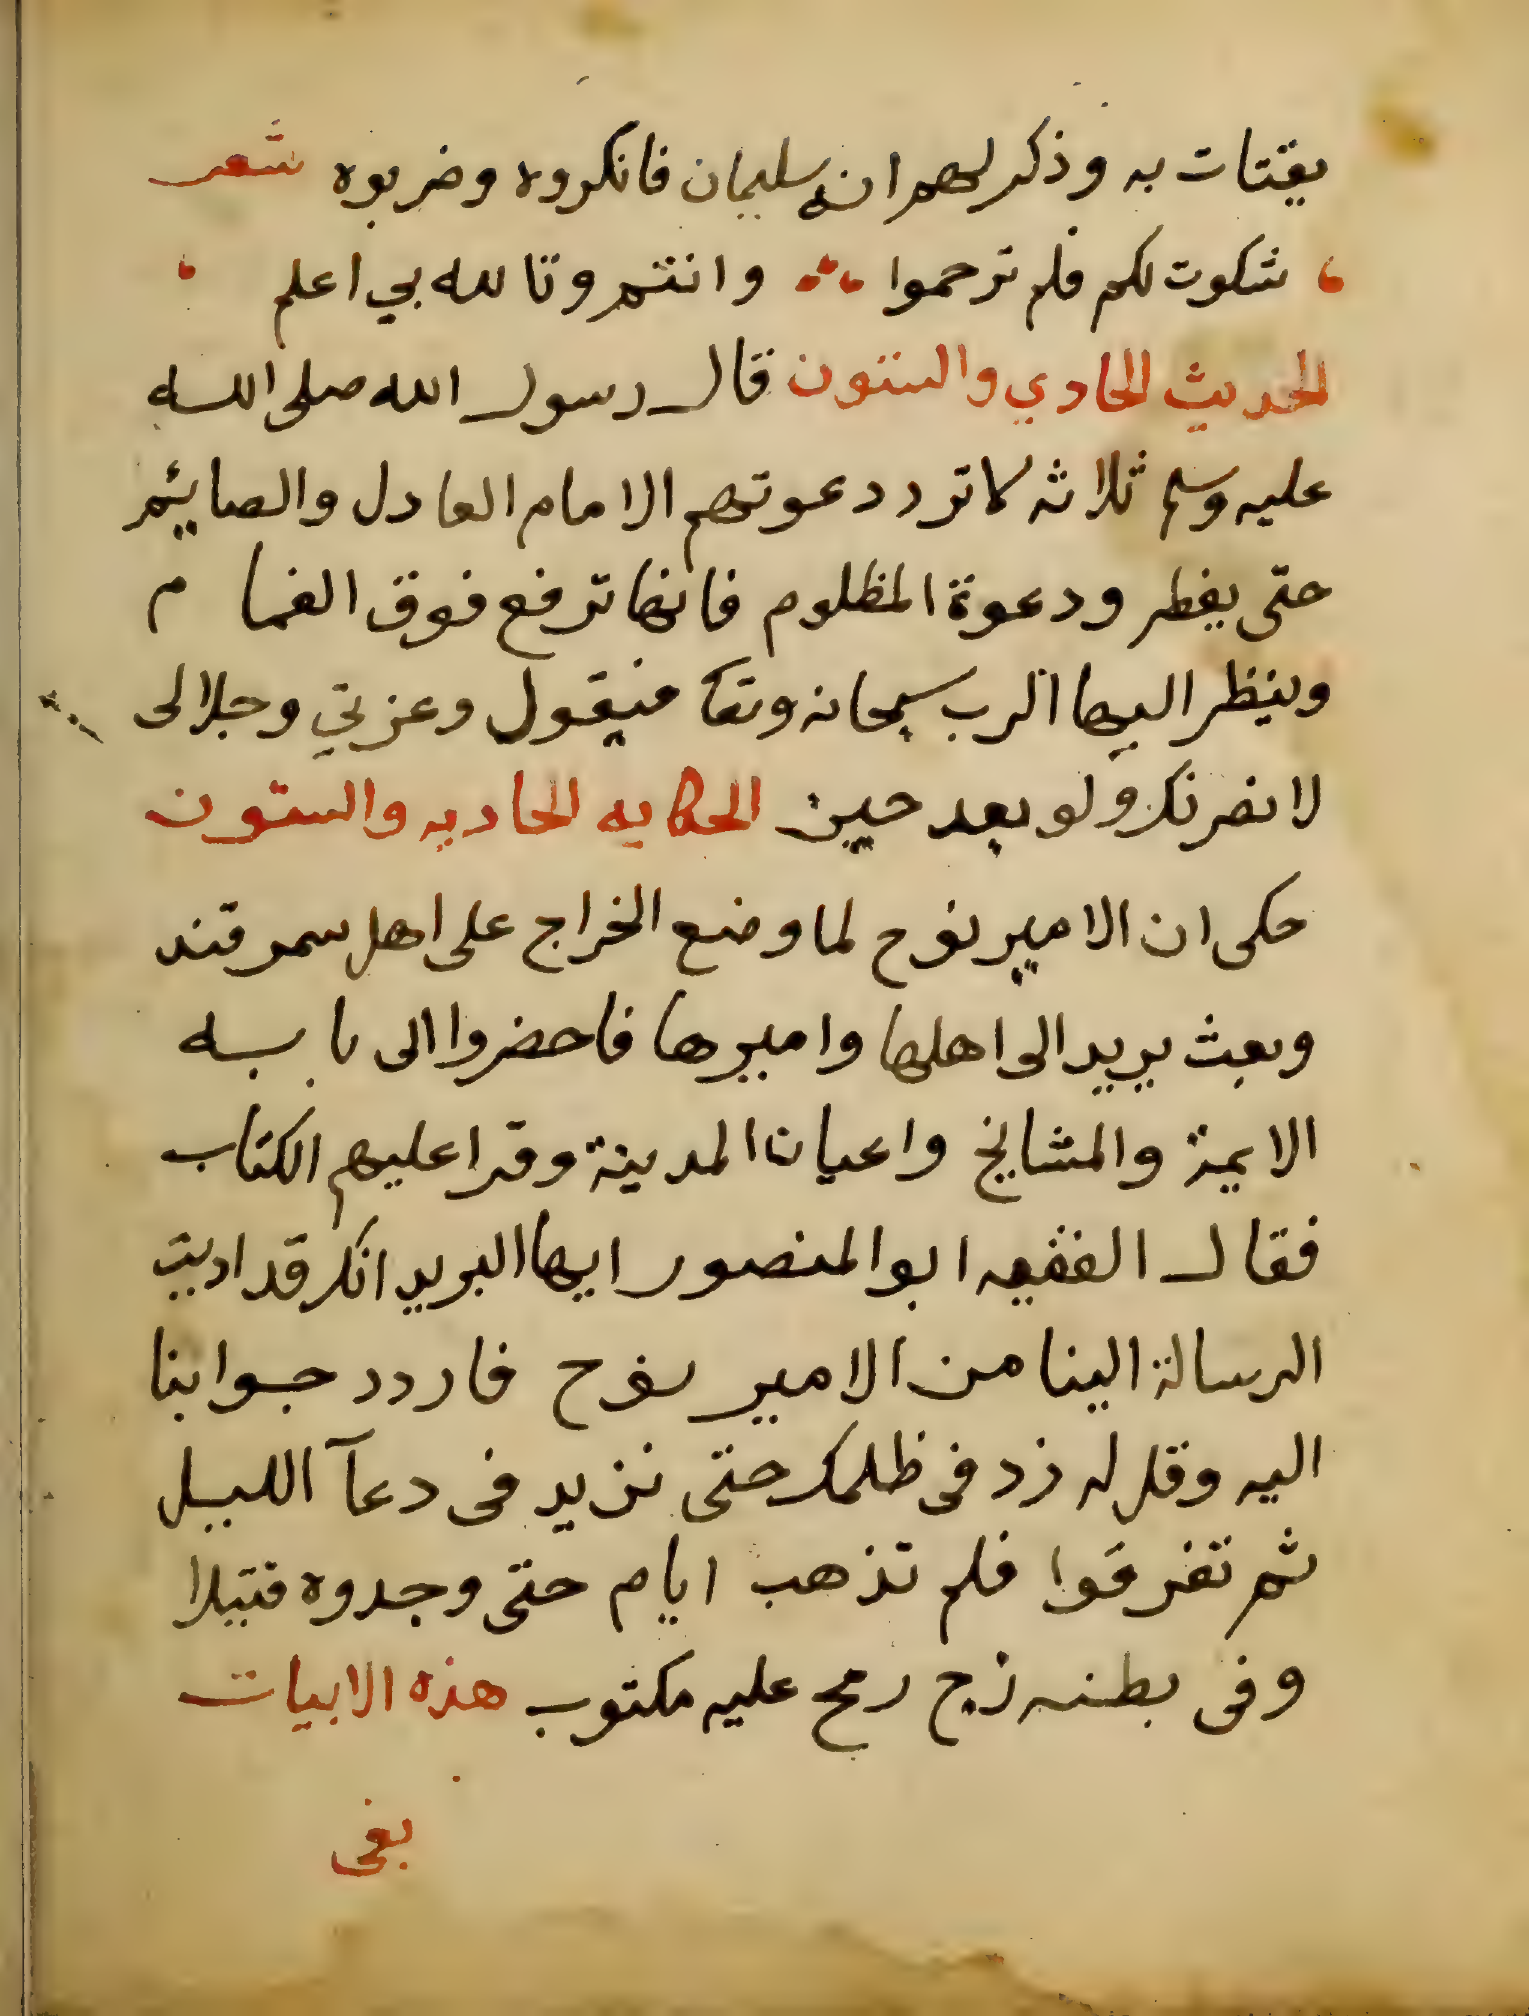 يقتات به وذكر لهم انه سليمان فانكروه وضربوه شعر
شكوت لكم فلم ترحموا وانتم وتالله بي اعلم
الحديث الحادي والستون قال رسول الله صلى الله
عليه وسلم ثلاثه لا تردد دعوتهم الامام العادل والصايئم
حتى يفطر ودعوة المظلوم فانها ترفع فوق الغمام
وينظر اليها الرب سبحانه وتعا فيقول وعزتي وجلالى
لانصرنك ولو بعد حين الحكايه الحاديه والستون
حكى ان الامير نوح لما وضع الخراج على اهل سمرقند
وبعث بريد الى اهلها واميرها فاحضروا الى بابه
الايمة والمشايخ واعيان المدينة وقرا عليهم الكتاب
فقال الفقيه ابو المنصور ايها البريد انك قد اديت
الرسالة الينا من الامير نوح فاردد جوابنا
اليه وقل له زد فى ظلمك حتى نزيد فى دعآ الليل
ثم تفرقوا فلم تذهب ايام حتى وجدوه قتيلا
وفى بطنه زج رمح عليه مكتوب هذه الابيات
بغى